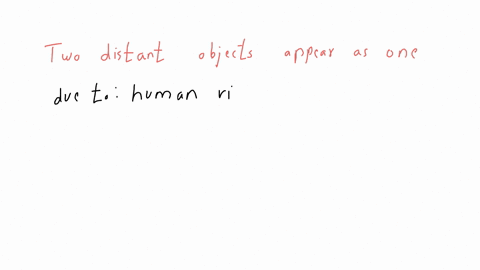 Two distant objects appear as one
due to: human ri